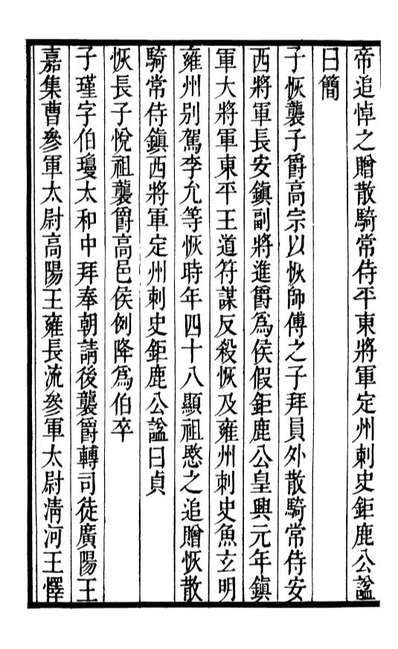 帝追悼之贈散騎常侍平東將軍定州刺史鉅鹿公諡
曰簡
子恢襲子爵高宗以恢師傅之子拜員外散騎常侍安
西將軍長安鎮副將進爵爲侯假鉅鹿公皇興元年鎮
軍大將軍東平王道符謀反殺恢及雍州刺史魚玄明
雍州别駕李允等恢時年四十八顯祖愍之追贈恢散
騎常侍鎮西將軍定州刺史鉅鹿公諡曰貞
恢長子悅祖襲爵高邑侯例降爲伯卒
子瑾字伯瓊太和中拜奉朝請後襲爵轉司徒廣陽王
嘉集曹參軍太尉高陽王雍長流參軍太尉清河王懌